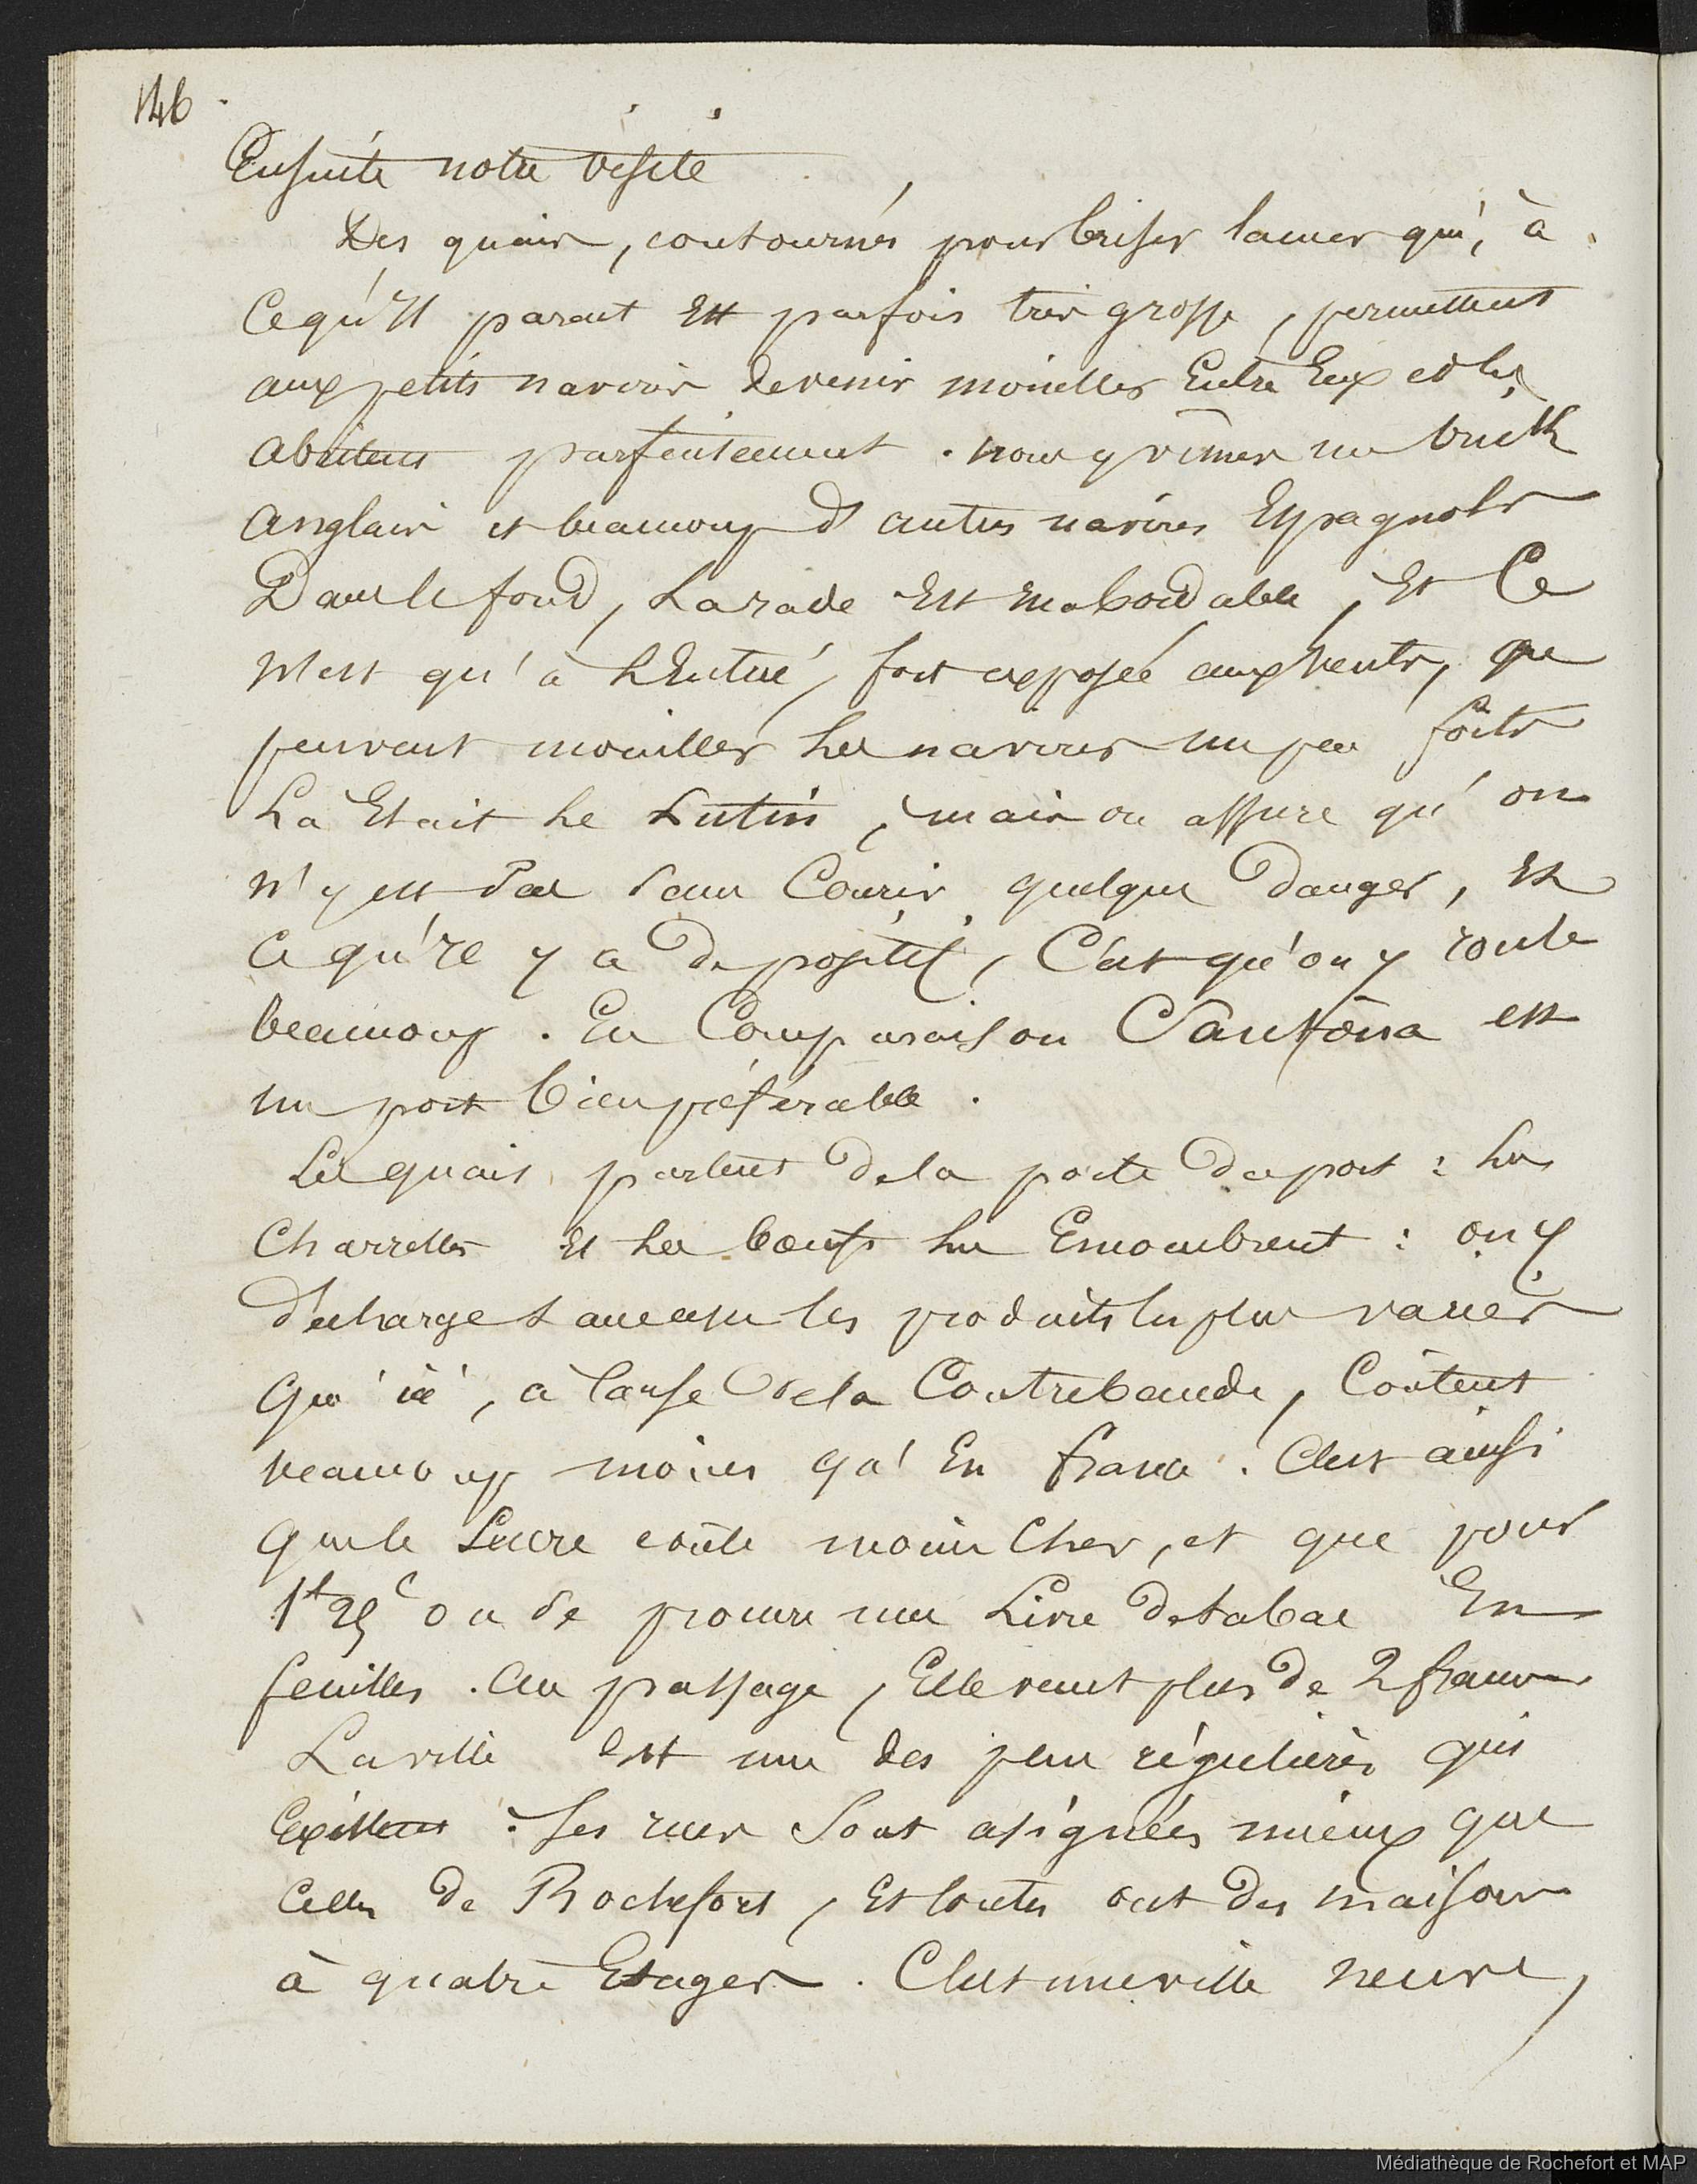 146
Ensuite notre visite
Des quais, contournés pour briser la mer qui, à
ce qu'il parait est parfois très grosse, permettent
aux petits navires de venir mouiller Entre Eux et les
abritent parfaitement. nous y vîmes un brick
anglais et beaucoup d'autres navires Espagnols
Dans le fond, La rade Est inabordable, Et Ce
n'est qu'à L'Entrée, fort exposée aux vents, que
peuvent mouiller les navires un peu forts
Là Etait Le Lutin, mais on assure qu'on
n'y est Pas sans Courir quelque Danger, Et
ce qu'il y a De positif, C'est qu'on y roule
beaucoup. En Comparaison Santona est
un port bien préférable.
Les quais partent De la porte du port : Les
Charrettes Et Les boeufs Les Encombrent : on y
Décharge sans cesse les produits les plus variés
Qui ici, à Cause De la Contrebande, Coûtent
beaucoup moins qu'En france. C'est ainsi
que le Sucre coûte moins Cher, et que pour
1f 25c on se procure une Livre De tabac En
feuilles. Au passage, Elle vaut plus De 2 francs
La ville est une des plus régulières qui
Existent : Ses rues Sont alignées mieux que
Celles De Rochefort, Et toutes ont Des maisons
à quatre Etages. C'est une ville neuve,
Médiathèque de Rochefort et MAP